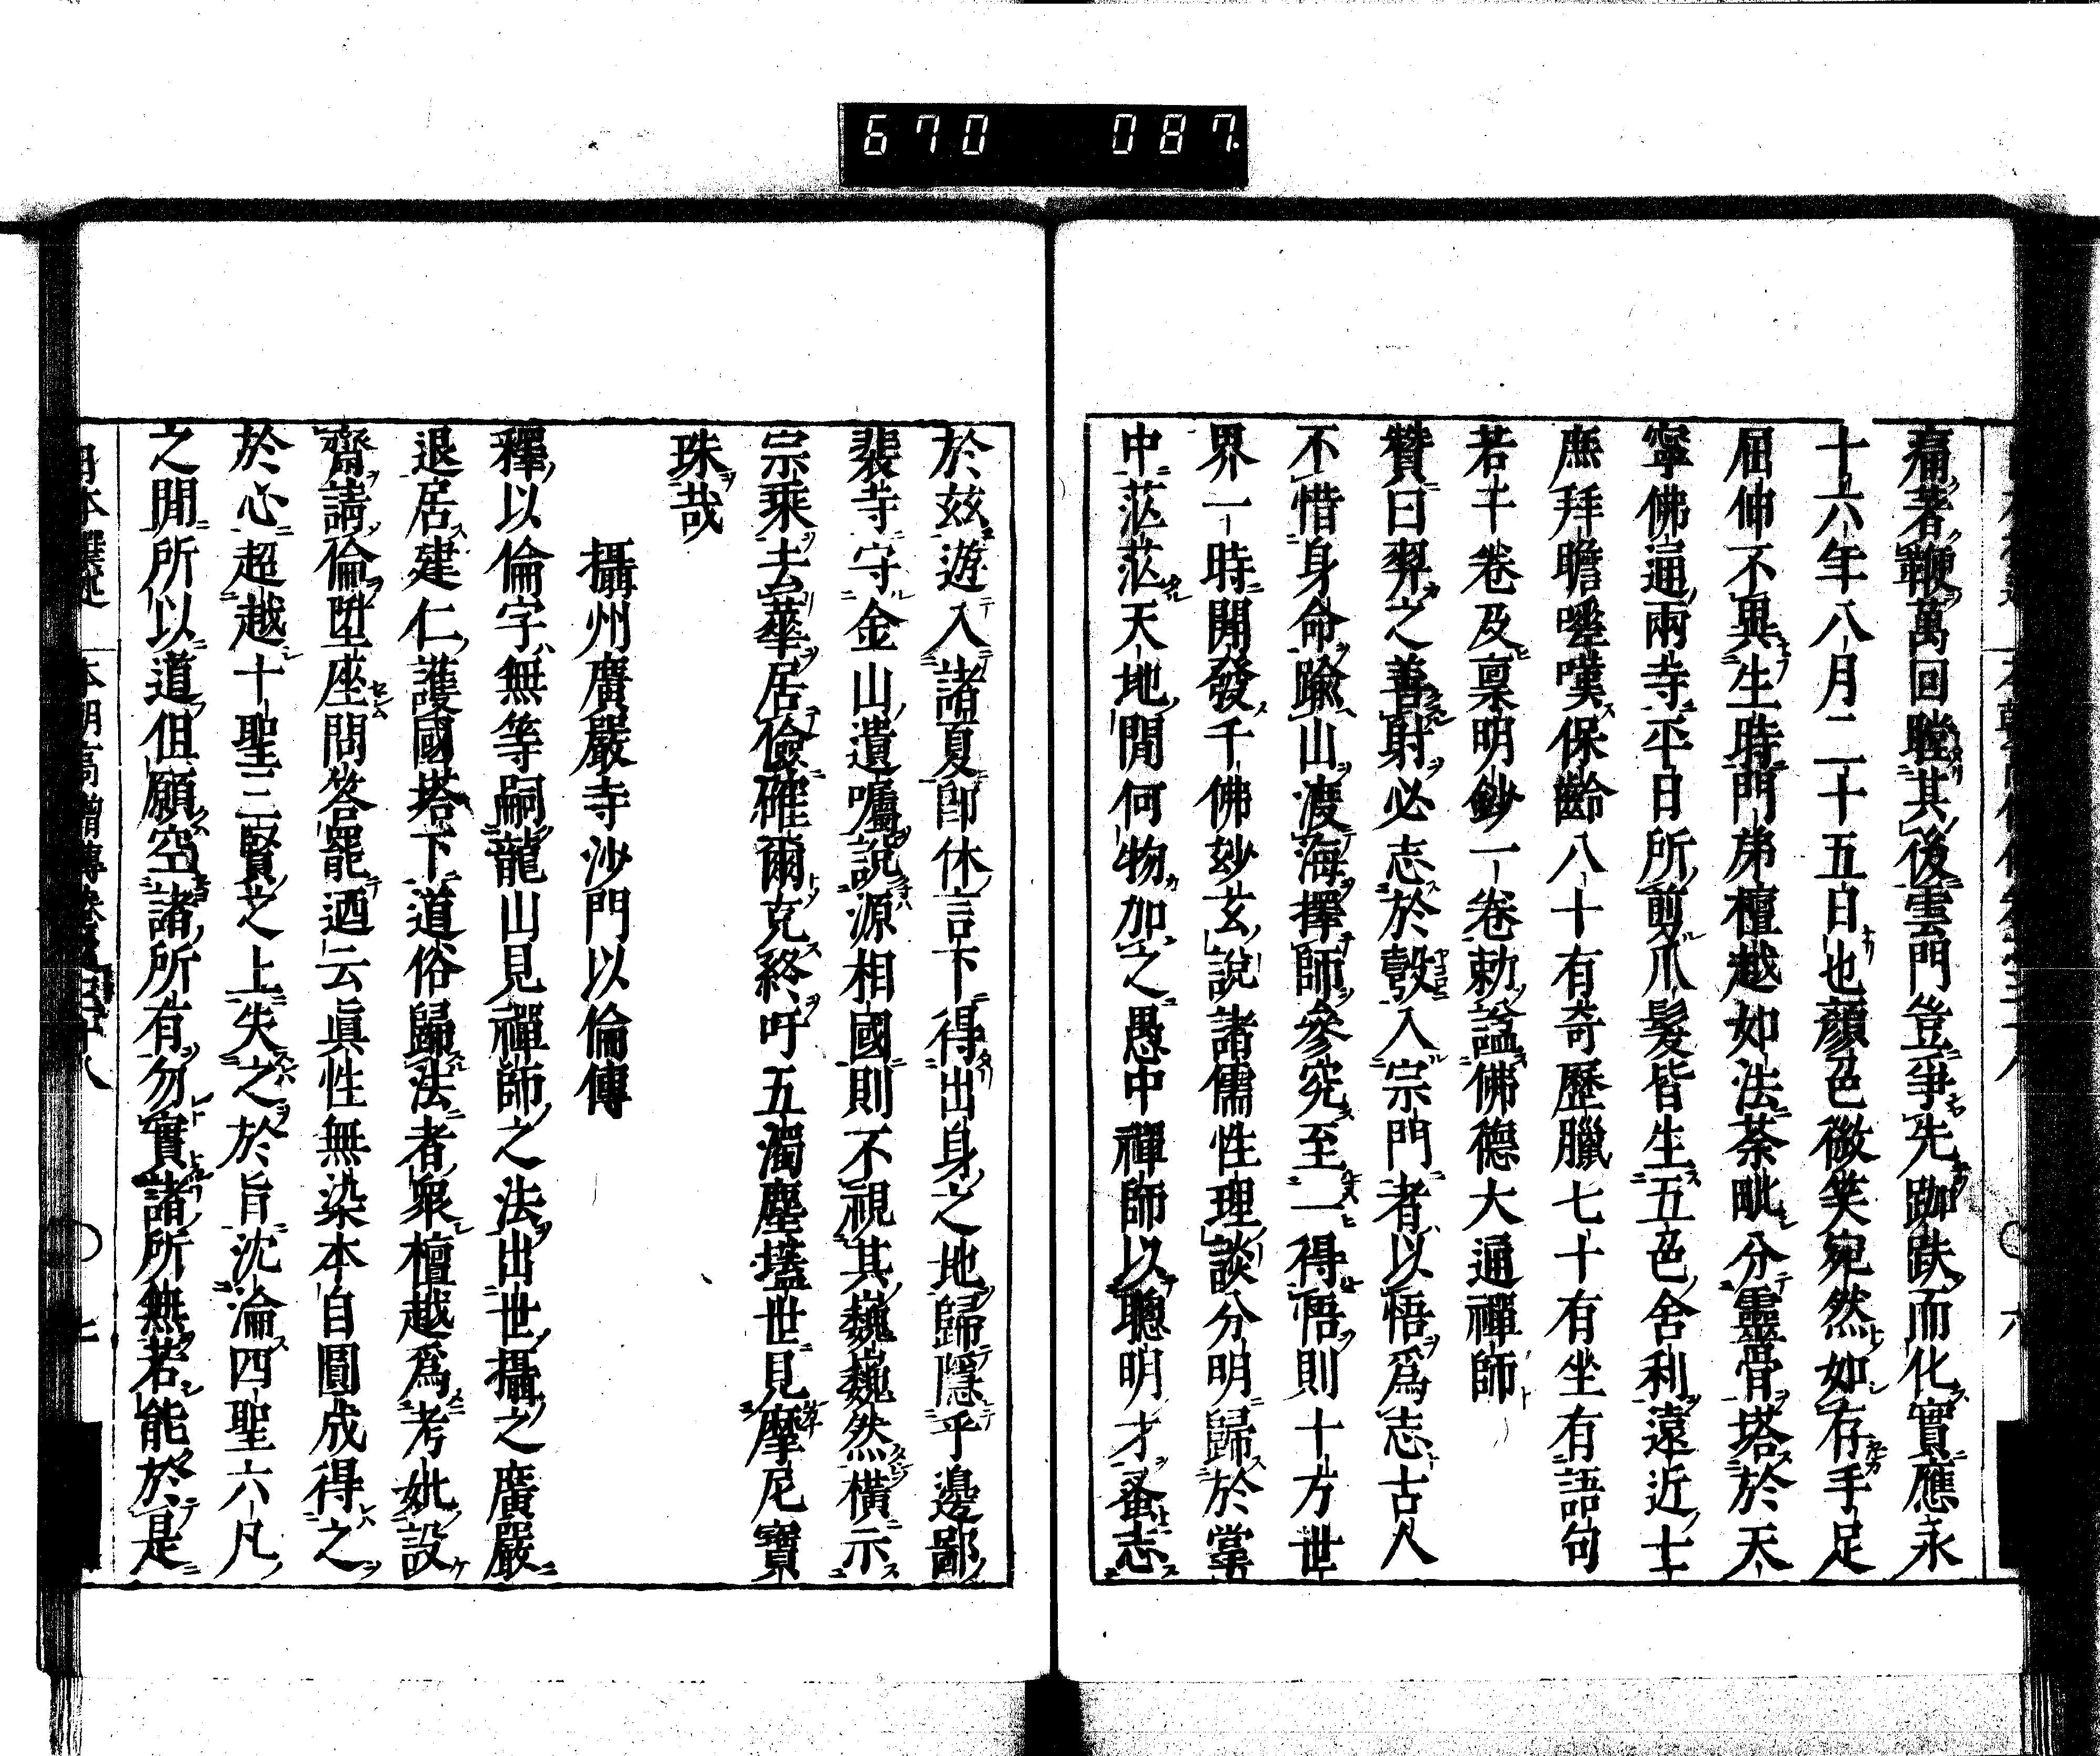 670 087
痛著鞭萬回瞠其後雲門豈爭先跏趺而化實應永
十六年八月二十五日也顏色微笑宛然如存手足
屈伸不異生時門弟檀越如法荼毗分靈骨塔於天
寧佛通兩寺平日所剪爪髮皆生五色舍利遠近士
庶拜瞻嗟嘆保齡八十有奇歷臘七十有坐有語句
若干卷及稟明鈔一卷勅諡佛德大通禪師
贊曰羿之善射必志於彀入宗門者以悟爲志古人
不惜身命踰山渡海擇師參究至一得悟則十方世
界一時開發千佛玅玄說諸儒性理談分明歸於掌
中茫茫天地間何物加之愚中禪師以聰明才蚤志
於玆遊入諸夏卽休言下得出身之地歸隱乎邊鄙
裴寺守金山遺囑說源相國則不視其巍巍然橫示
宗乘去華居儉確爾克終吁五濁塵壒世見摩尼寶
珠哉
攝州廣嚴寺沙門以倫傳
釋以倫字無等嗣龍山見禪師之法出世攝之廣嚴
退居建仁護國塔下道俗歸法者衆檀越爲考妣設
齋請倫陞座問答罷迺云眞性無染本自圓成得之
於心超越十聖三賢之上失之於旨沈淪四聖六凡
之間所以道但願空諸所有勿實諸所無若能於是